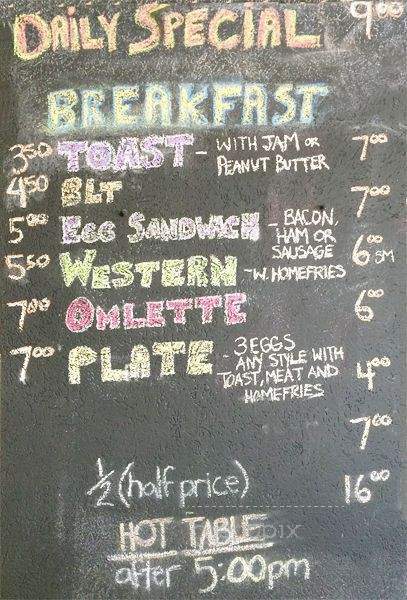 DAILY SPECIAL 9.00
BREAKFAST
3.50 TOAST - WITH JAM OR PEANUT BUTTER 7.00
4.50 BLT 7.00
5.00 EGG SANDWICH - BACON, HAM OR SAUSAGE 6.00 SM
5.50 WESTERN - W. HOMEFRIES
7.00 OMLETTE 6.00
7.00 PLATE - 3 EGGS ANY STYLE WITH TOAST, MEAT AND HOMEFRIES 4.00
7.00
1/2 (half price) 16.00
HOT TABLE
after 5:00pm